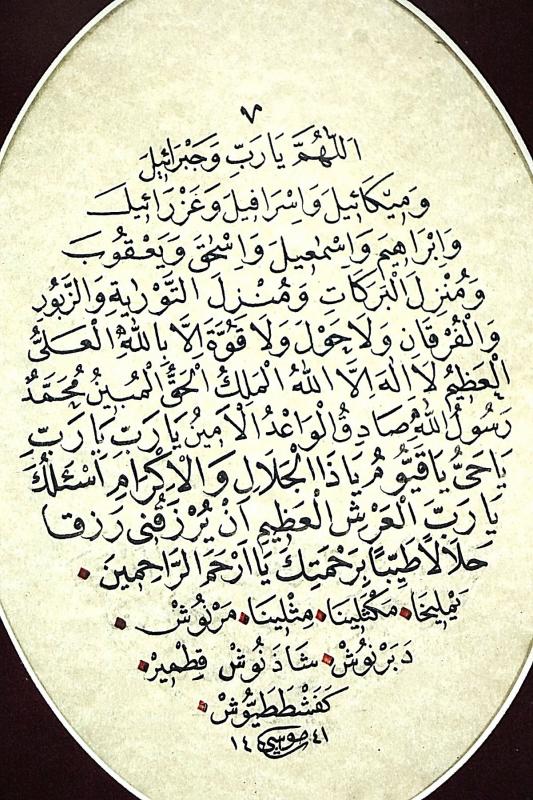 ٧
اَللّٰهُمَّ يَا رَبِّ وَجَبْرَائِلَ
وَمِيكَائِيلَ وَاِسْرَافِيلَ وَعَزْرَائِيلَ
وَاِبْرَاهِيمَ وَاِسْمٰعِيلَ وَاِسْحٰقَ وَيَعْقُوبَ
وَمُنْزِلَ الْبَرَكَاتِ وَمُنْزِلَ التَّوْرٰيةِ وَالزَّبُورِ
وَالْفُرْقَانِ وَلَا حَوْلَ وَلَا قُوَّةَ اِلَّا بِاللّٰهِ الْعَلِىُّ
الْعَظِيمُ لَا اِلٰهَ اِلَّا اللّٰهُ الْمَلِكُ الْحَقُّ الْمُبِينُ مُحَمَّدٌ
رَسُولُ اللّٰهِ صَادِقُ الْوَاعْدُ الْاَمِينُ يَا رَبِّ يَا رَبِّ
يَا حَىُّ يَا قَيُّومُ يَا ذَا الْجَلَالِ وَالْاِكْرَامِ اَسْئَلُكَ
يَا رَبَّ الْعَرْشِ الْعَظِيمِ اَنْ يُرْزَقُنِى رِزقا
حَلَالًا طَيِّبًا بِرَحْمَتِكَ يَا اَرْحَمَ الرَّاحِمِينَ
يَمْلِيخَا مَكْثَلِينَا مِثْلِينَا مَرْنُوشْ
دَبَرْنُوشْ شَاذَنُوشْ قِطْمِيرْ
كَفَشْطَطَيُّوشْ
موسى ١٤٤١